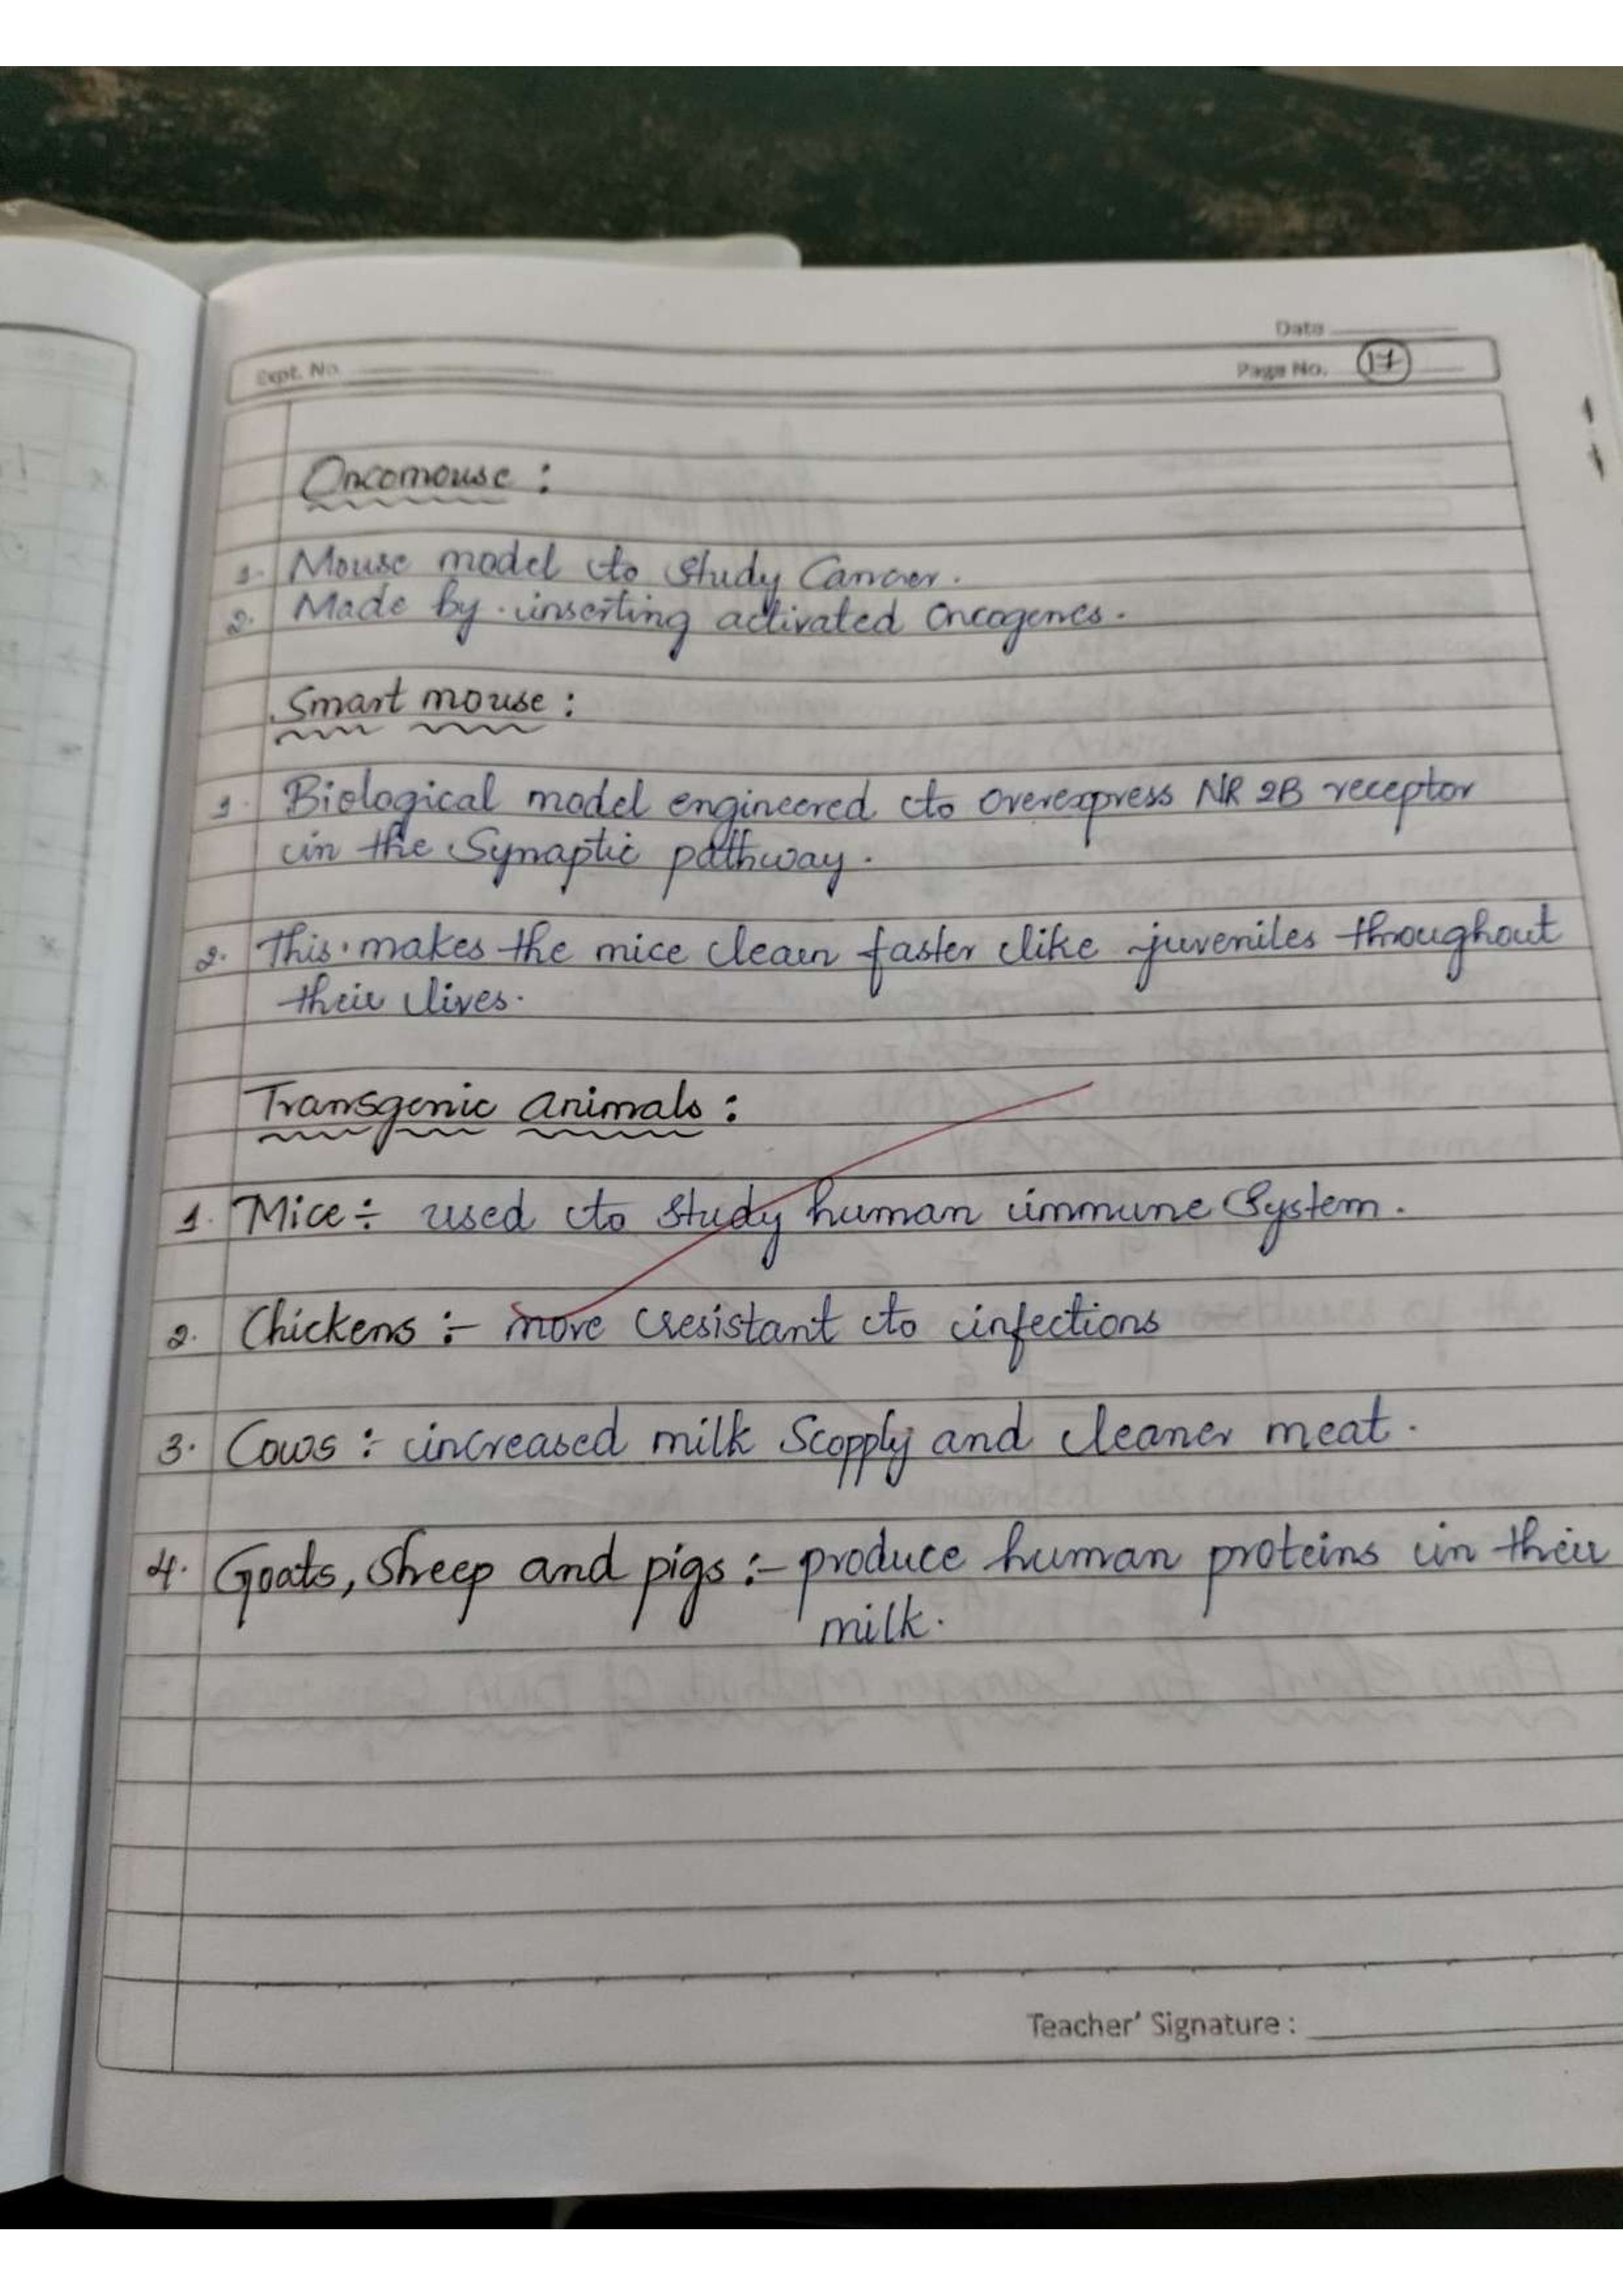 Date
Expt. No.
Page No. 17
Oncomouse :
1. Mouse model to study Cancer.
2. Made by inserting activated Oncogenes.
Smart mouse :
1. Biological model engineered to Overexpress NR 2B receptor
in the Synaptic pathway.
2. This makes the mice learn faster like juveniles throughout
their lives.
Transgenic animals :
1. Mice :- used to study human immune System.
2. Chickens :- more resistant to infections
3. Cows :- increased milk Scopply and cleaner meat.
4. Goats, Sheep and pigs :- produce human proteins in their
milk.
Teacher' Signature :